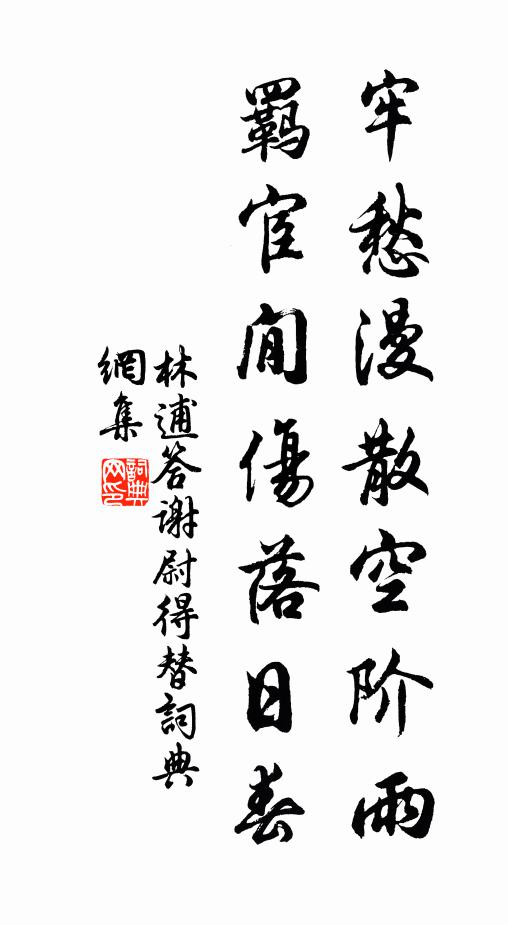 牢愁漫散空阶雨
羈宦閒傷落日春
林逋答謝尉得替詞典
網集
詞典
网印